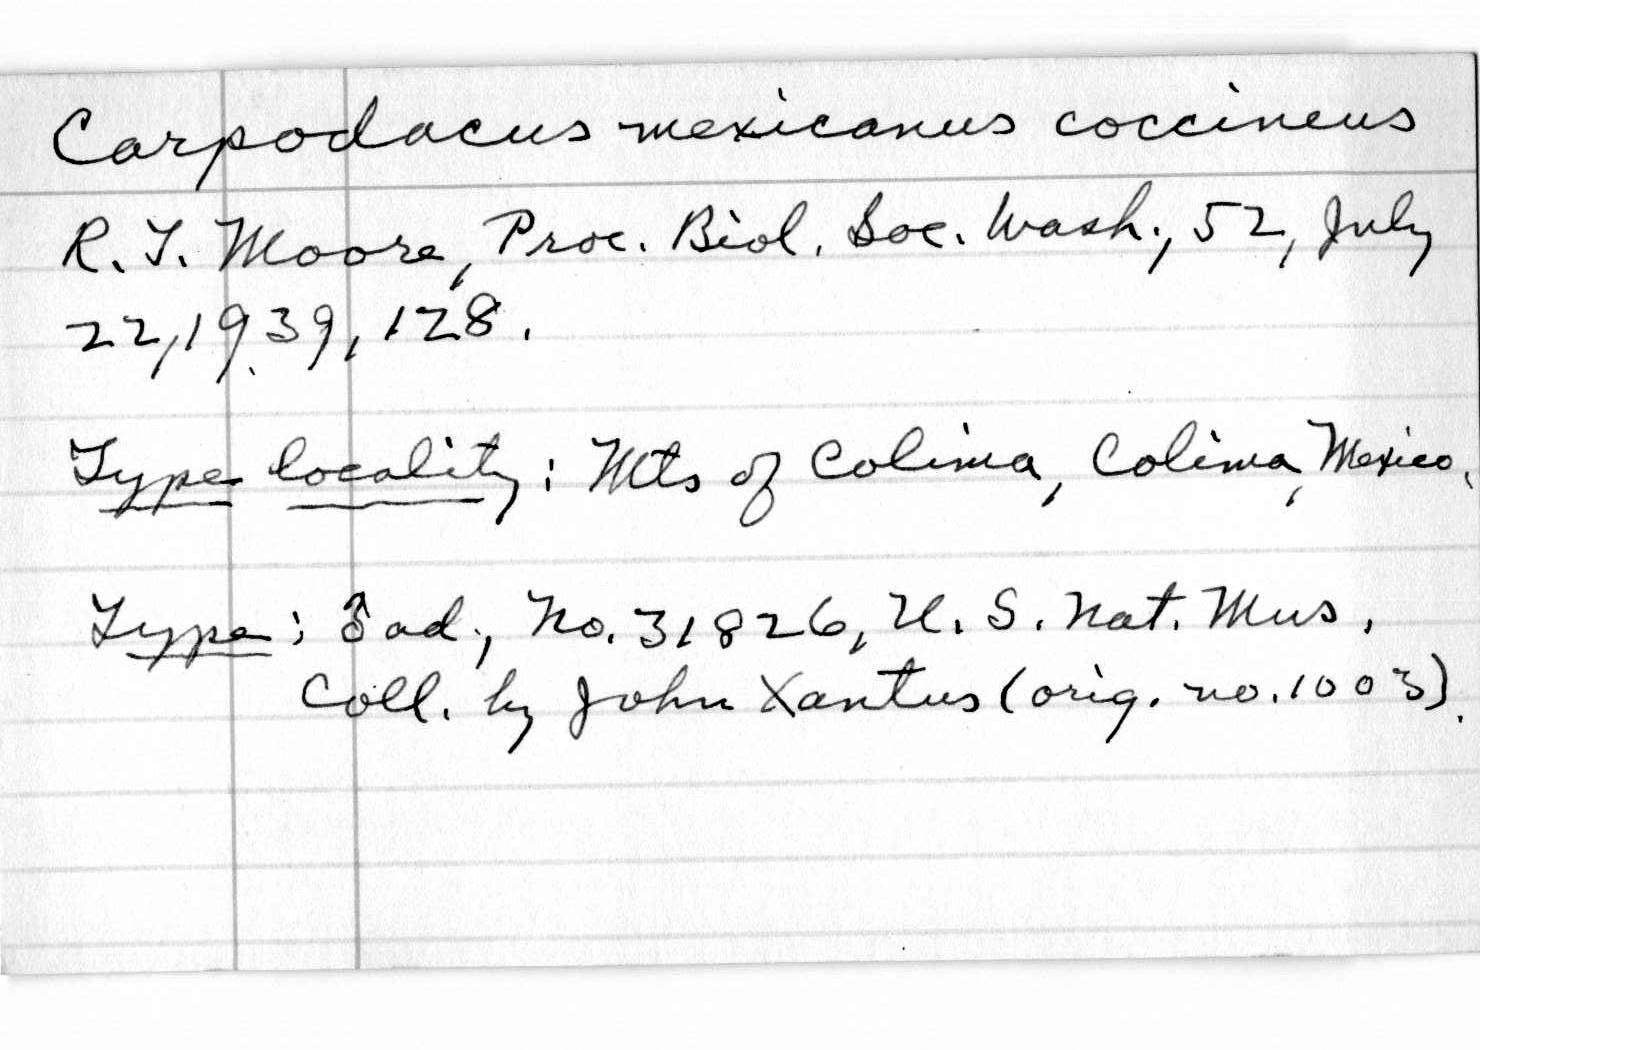 Carpodacus mexicanus coccineus
R. T. Moore, Proc. Biol. Soc. Wash., 52, July
22, 1939, 128.
Type locality: Mts of Colima, Colima, Mexico.
Type: ♂ ad., No. 31826, U. S. Nat. Mus.
Coll. by John Xantus (orig. no. 1003).